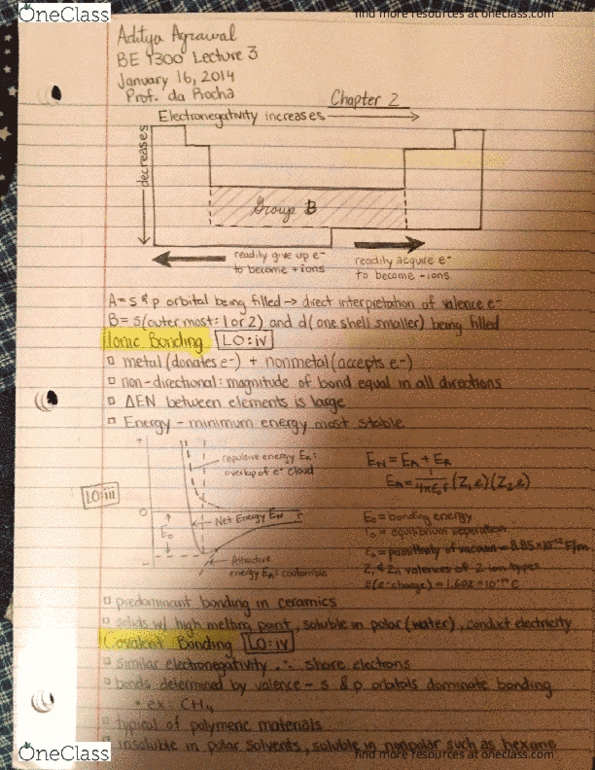 OneClass
find more resources at oneclass.com
Aditya Agrawal
BE 1300 Lecture 3
January 16, 2014
Prof. da Rocha
Chapter 2
Electronegativity increases
decreases
Group B
readily give up e-
to become +ions
readily acquire e-
to become -ions
A = s & p orbital being filled → direct interpretation of valence e-
B = s(outer most: 1 or 2) and d(one shell smaller) being filled
Ionic Bonding LO:iv
metal (donates e-) + nonmetal (accepts e-)
non-directional: magnitude of bond equal in all directions
ΔEN between elements is large
Energy - minimum energy most stable
+
repulsive energy ER:
overlap of e- cloud
EN = EA + ER
EA = 1/4πε0r (Z1e)(Z2e)
LO:iii
0
E0
Net Energy EN
r
-
Attractive
energy EA: coulombic
E0 = bonding energy
r0 = equilibrium seperation
ε0 = permittivity of vacuum = 8.85×10-12 F/m
Z1 & Z2 valences of 2 ion types
e(e-charge) = 1.602 ×10-19 C
predominant bonding in ceramics
solids w/ high melting point, soluble in polar (water), conduct electricity
Covalent Bonding LO:iv
similar electronegativity ∴ share electrons
bonds determined by valence - s & p orbitals dominate bonding
ex: CH4
typical of polymeric materials
insoluble in polar solvents, soluble in nonpolar such as hexane
OneClass
find more resources at oneclass.com